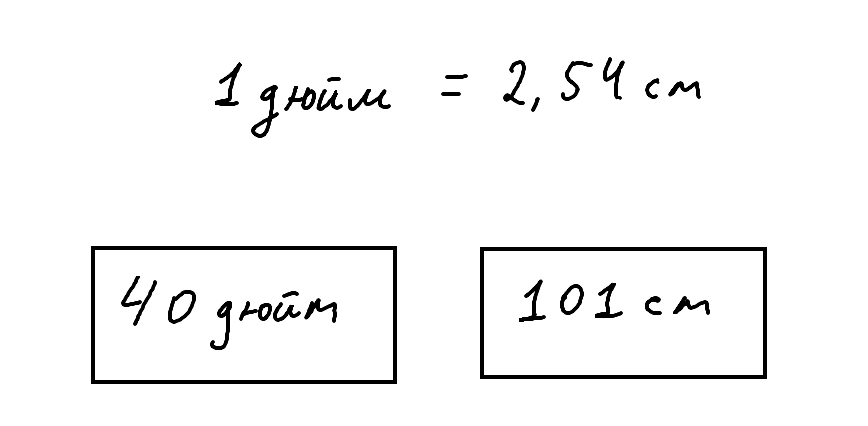 1 дюйм = 2,54 см
40 дюйм
101 см